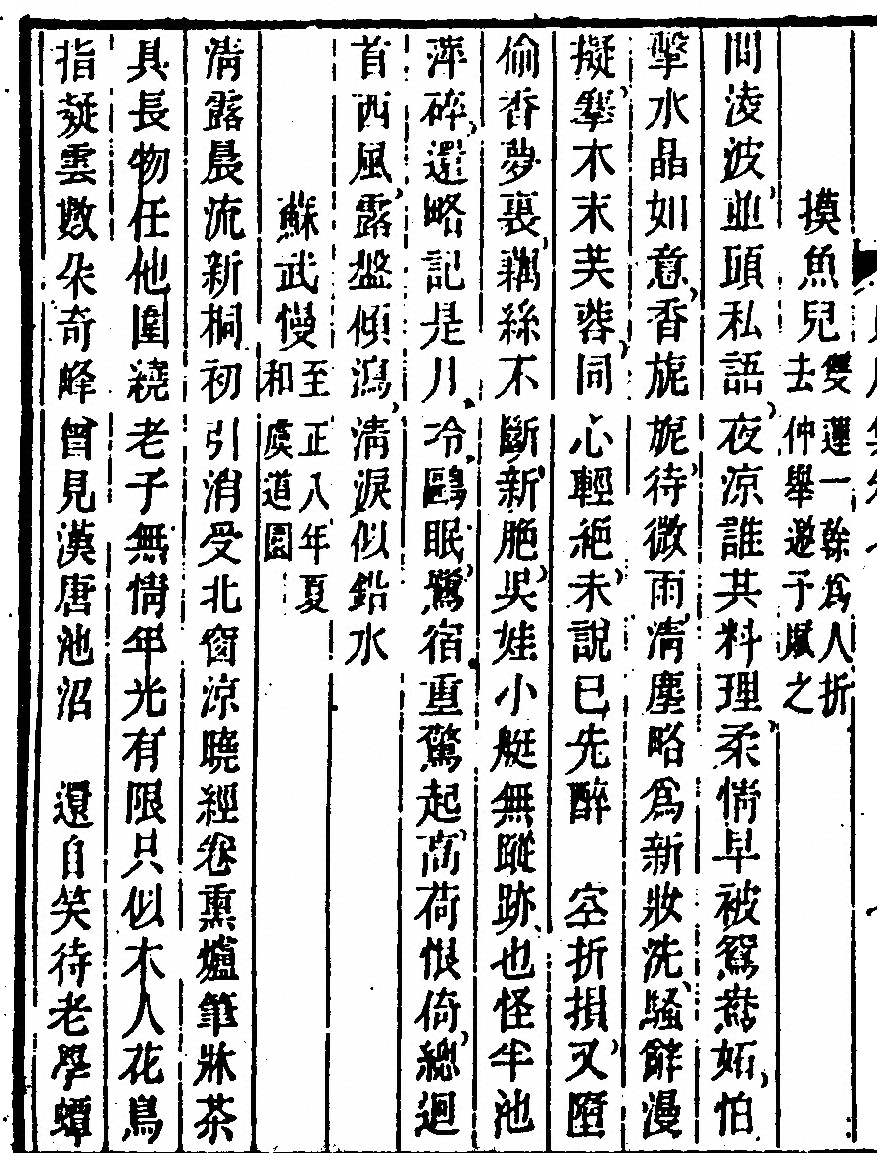 摸魚兒雙蓮一榦爲人折去仲舉邀予賦之
問凌波並頭私語夜涼誰共料理柔情早被鴛鴦妬怕
擊水晶如意香旎旎待微雨清塵略爲新妝洗騷辭漫
擬搴木末芙蓉同心輕絕未說已先醉　空折損又墮
偷香夢裏藕絲不斷新脃吳娃小艇無蹤跡也怪半池
萍碎還略記是月冷鷗眠鷺宿重驚起高荷恨倚總迴
首西風露盤傾瀉清淚似鉛水
蘇武慢至正八年夏和虞道園
清露晨流新桐初引消受北窗涼曉經卷熏爐筆牀茶
具長物任他圍繞老子無情年光有限只似木人花鳥
指凝雲數朵奇峰曾見漢唐池沼　還自笑待老學蟫